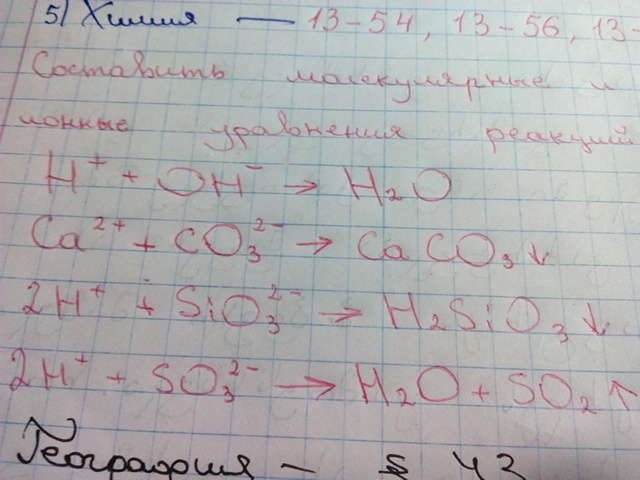 5) Химия — 13-54, 13-56, 13-
Составить молекулярные и
ионные уравнения реакций
H⁺ + OH⁻ → H₂O
Ca²⁺ + CO₃²⁻ → CaCO₃↓
2H⁺ + SiO₃²⁻ → H₂SiO₃↓
2H⁺ + SO₃²⁻ → H₂O + SO₂↑
География – § 42